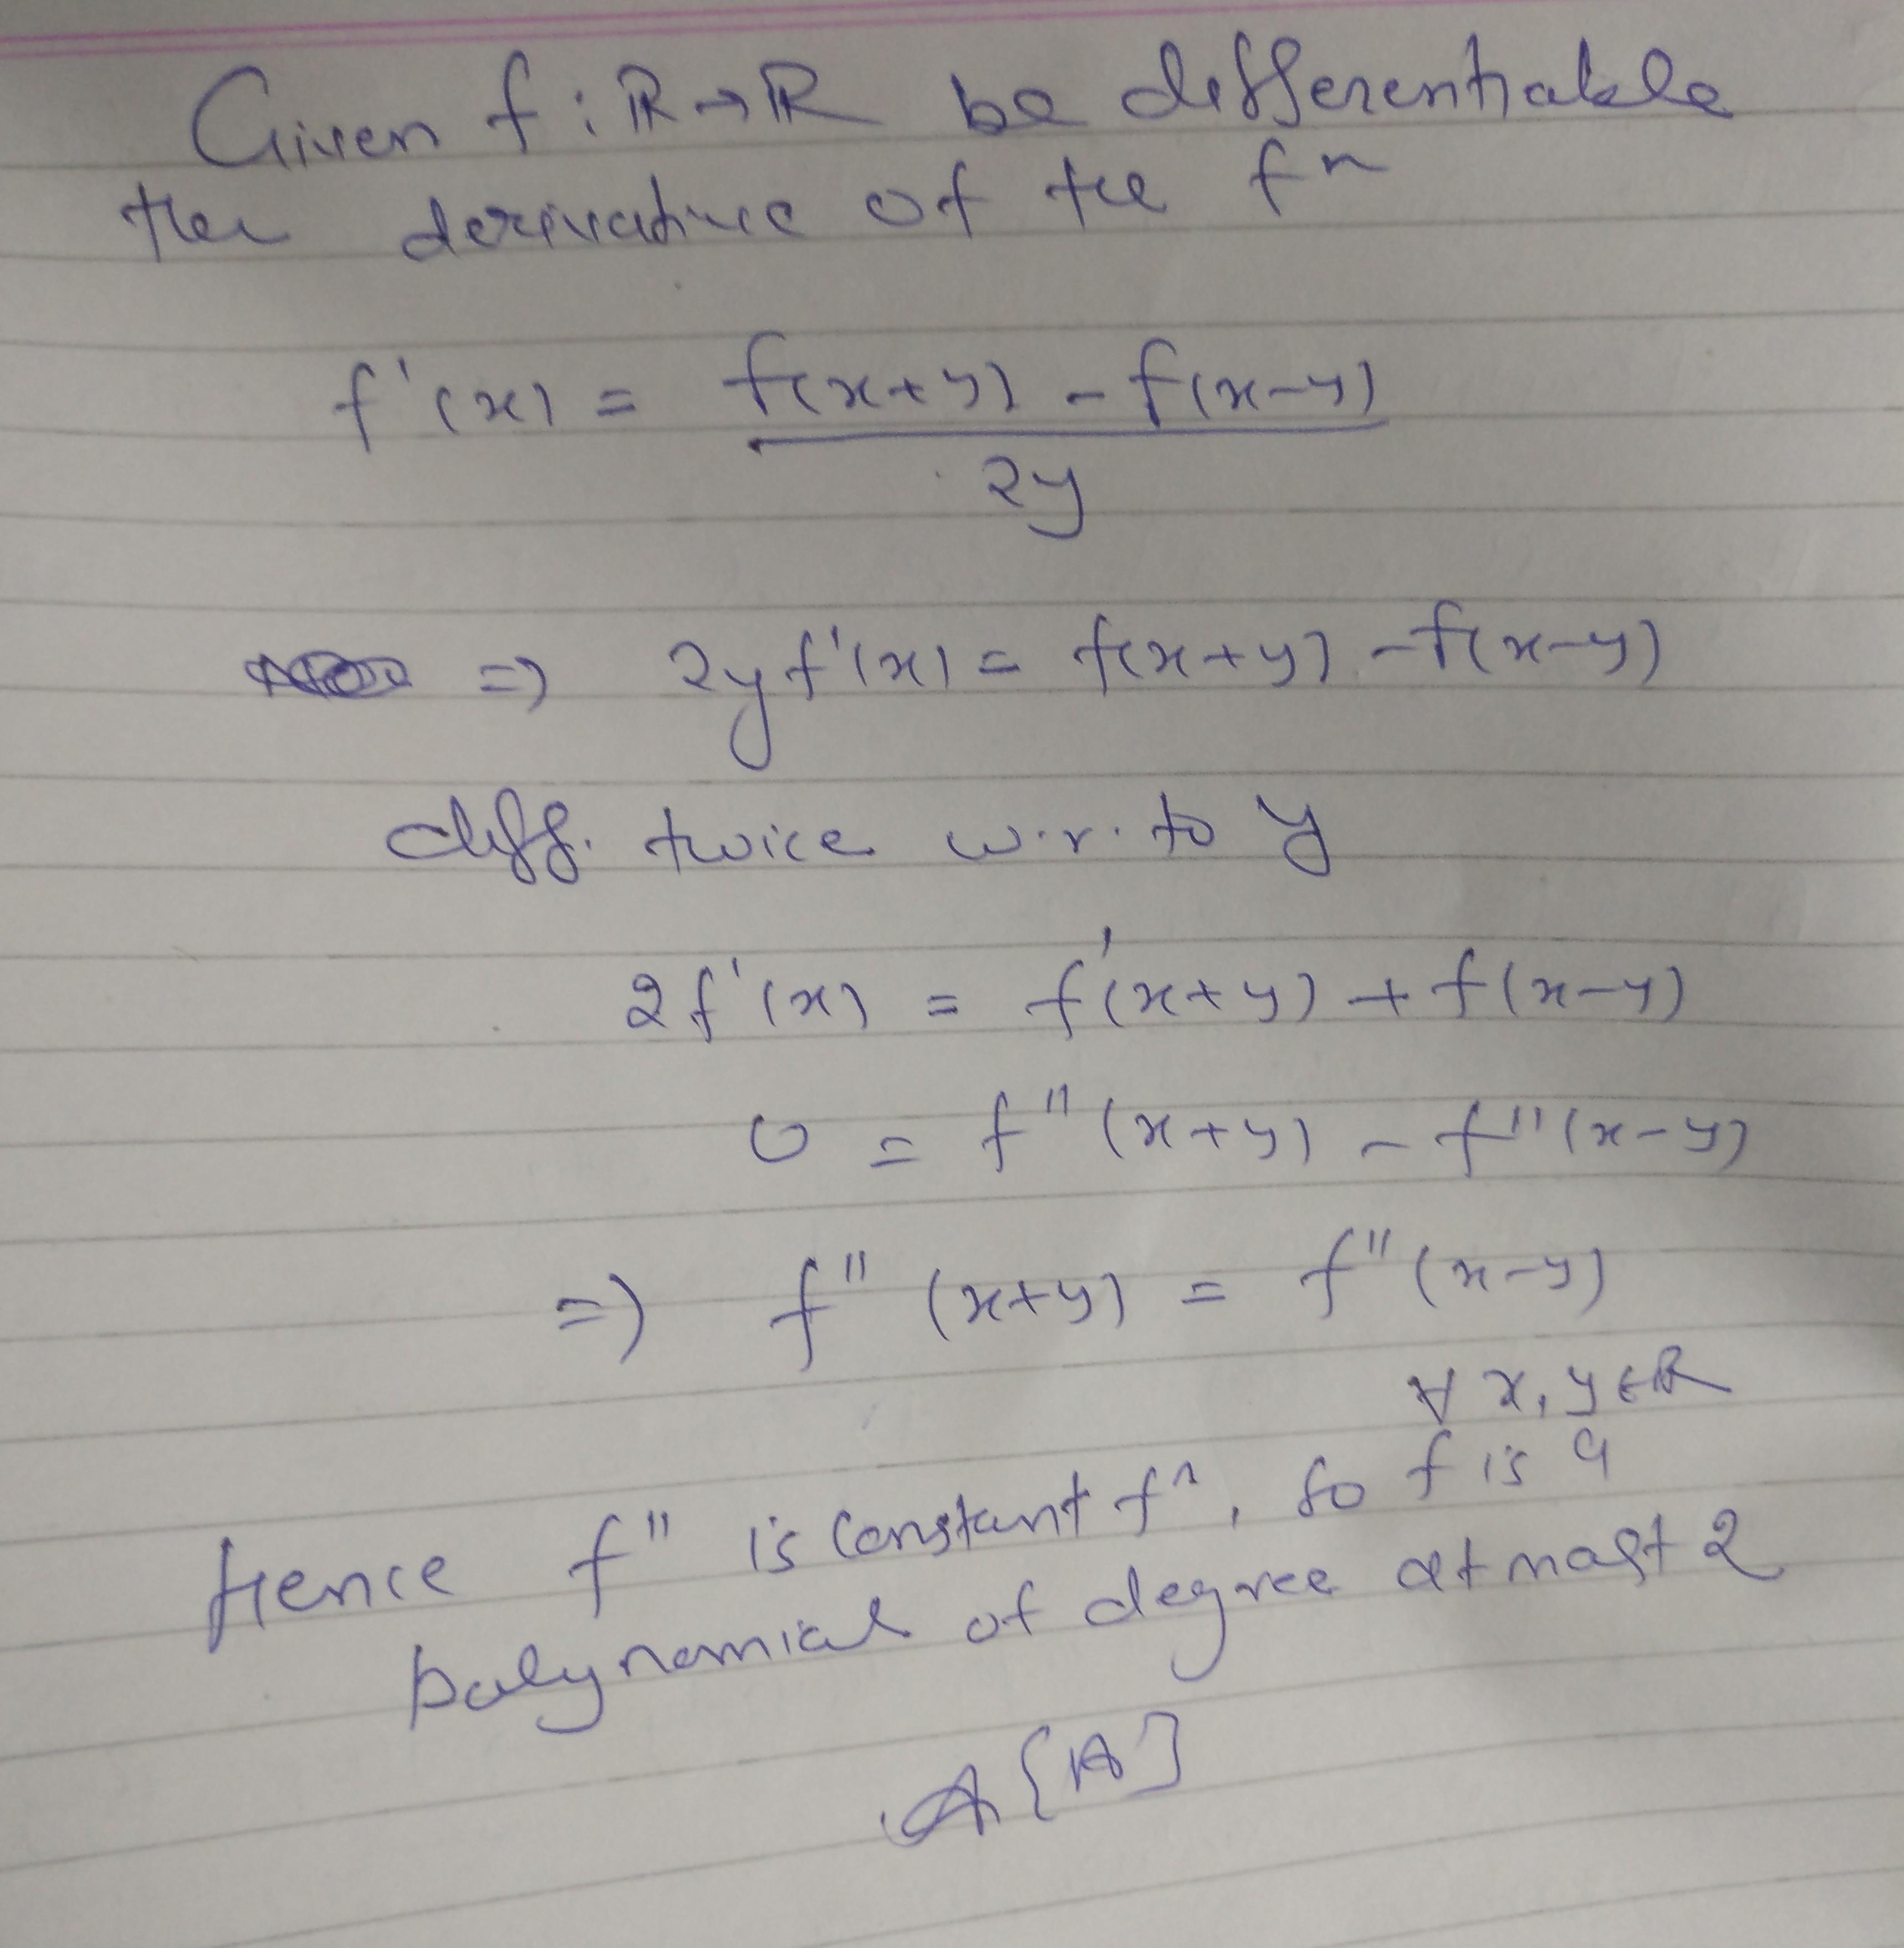 Given f : ℝ → ℝ be differentiable
then derivative of the fn
f'(x) = f(x+y) - f(x-y) / 2y
=> 2y f'(x) = f(x+y) - f(x-y)
diff. twice w.r. to y
2f'(x) = f'(x+y) + f(x-y)
0 = f''(x+y) - f''(x-y)
=> f''(x+y) = f''(x-y)
∀ x, y ∈ ℝ
Hence f'' is constant fn, so f is a
polynomial of degree at most 2
A[A]